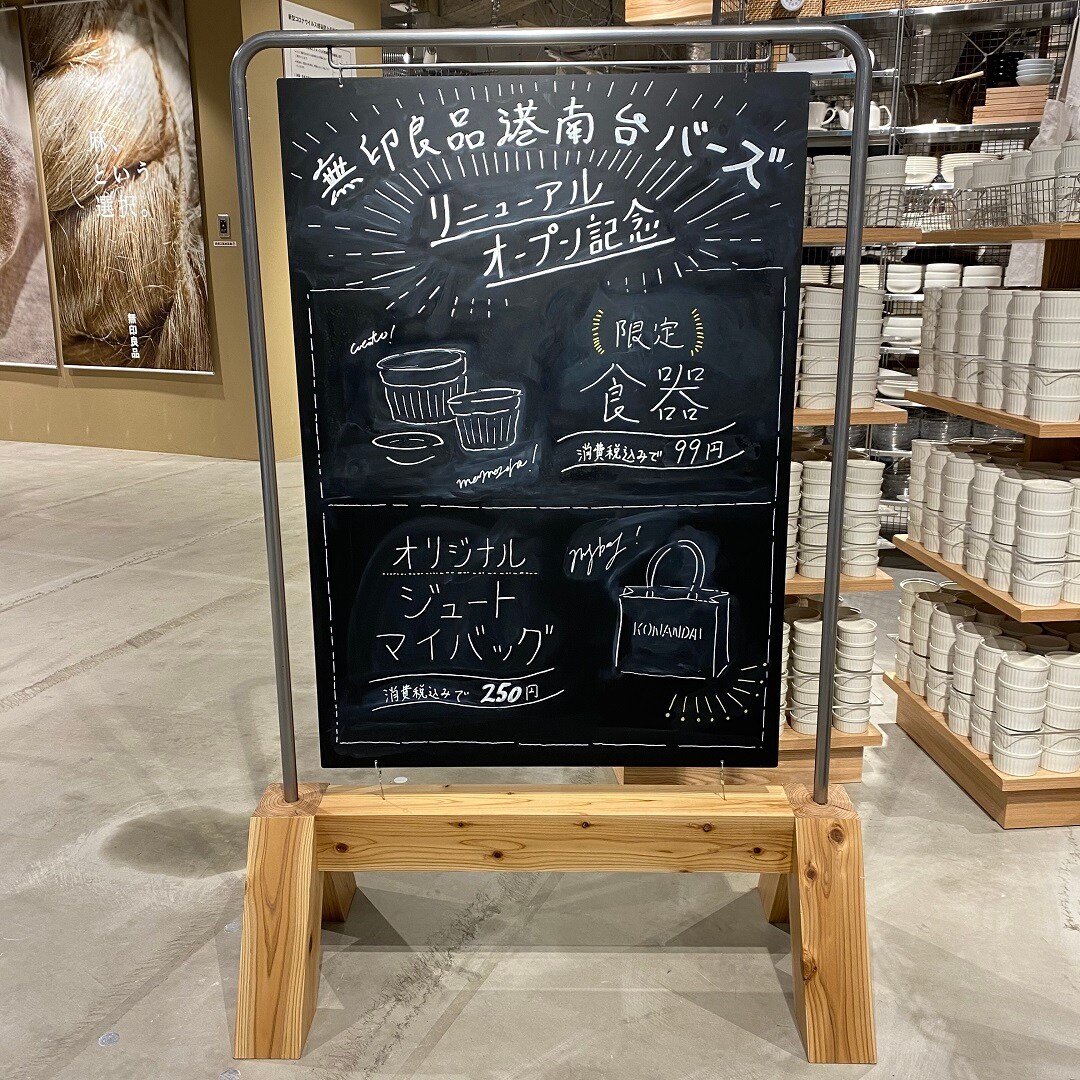 無印良品港南台バーズ
リニューアル
オープン記念
限定
食器
消費税込みで 99円
オリジナル
ジュート
マイバッグ
消費税込みで 250円
mybag!
KONANDAI
麻、
という
選択。
無印良品